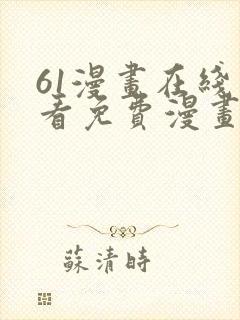 61漫畫在綫
看免費漫畫
蘇清時